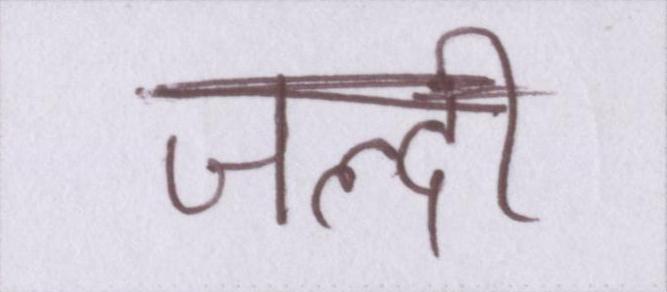 जल्दी